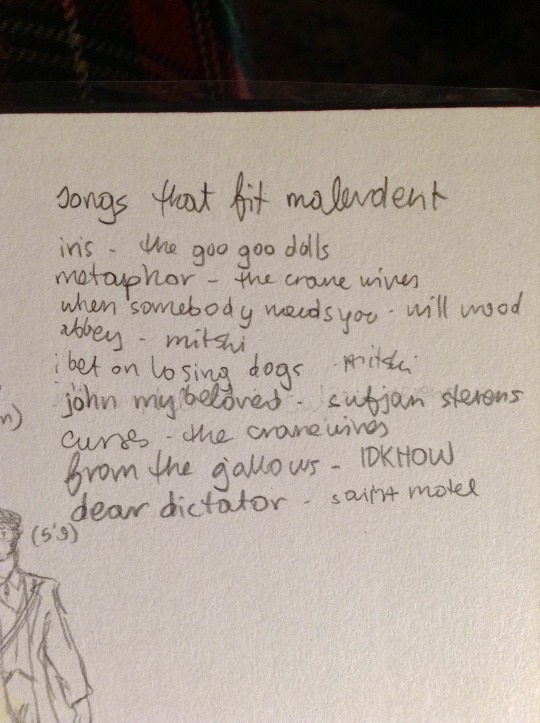 songs that fit malevolent
iris - the goo goo dolls
metaphor - the crane wives
when somebody needs you - will wood
abbey - mitski
i bet on losing dogs - mitski
john my beloved - sufjan stevens
n)
curses - the crane wives
from the gallows - IDKHOW
dear dictator - saint motel
(5'9)